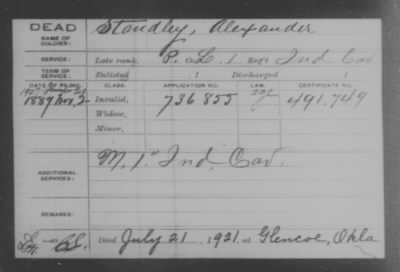 DEAD
NAME OF SOLDIER:
Standley, Alexander
SERVICE:
Late rank, P. Co. L. 1 Regt Ind Cav
TERM OF SERVICE:
Enlisted , 1 Discharged , 1
DATE OF FILING.
CLASS.
APPLICATION NO.
LAW.
CERTIFICATE NO.
1889 Nov. 2
Invalid,
736 855
491.749
Widow,
Minor,
ADDITIONAL SERVICES:
M. 1" Ind. Cav.
REMARKS:
Died July 21, 1921, at Glencoe, Okla